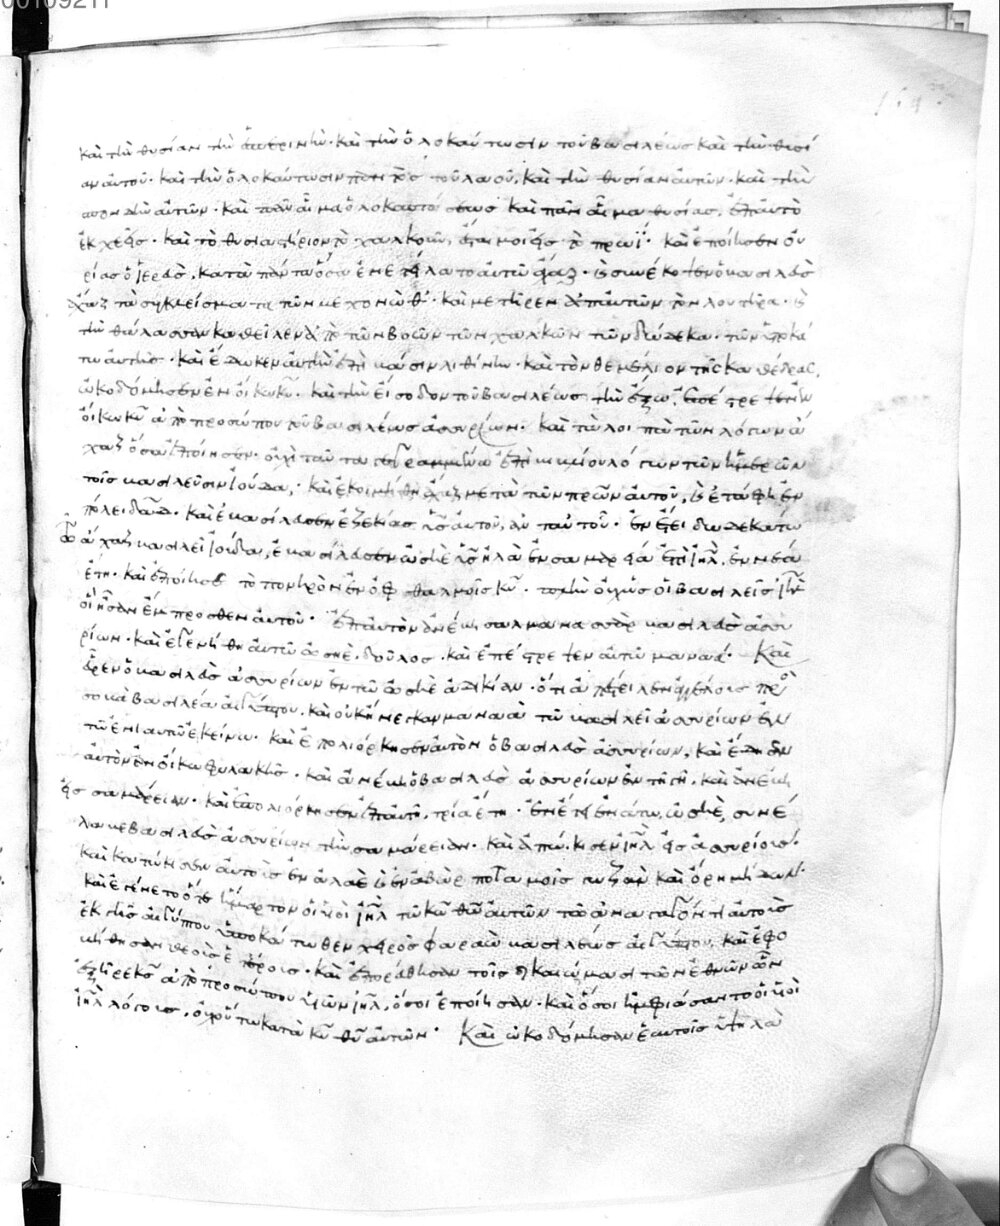 00109211
καὶ τὴν θυσίαν τὴν ἑσπερινήν· καὶ τὴν ὁλοκαύτωσιν τοῦ βασιλέως καὶ τὴν θυσί
αν αὐτοῦ· καὶ τὴν ὁλοκαύτωσιν παντὸς τοῦ λαοῦ, καὶ τὴν θυσίαν αὐτῶν· καὶ τὴν
σπονδὴν αὐτῶν· καὶ πᾶν αἷμα ὁλοκαυτώσεως καὶ πᾶν αἷμα θυσίας, ἐπ' αὐτὸ
ἐκχεεῖς· καὶ τὸ θυσιαστήριον τὸ χαλκοῦν, ἔσται μοι εἰς τὸ πρωΐ· καὶ ἐποίησεν οὐ
ρίας ὁ ἱερεὺς, κατὰ πάντα ὅσα ἐνετείλατο αὐτῷ ἄχαζ· καὶ συνέκοψεν ὁ βασιλεὺς
ἄχαζ τὰ συγκλείσματα τῶν μεχονώθ· καὶ μετῆρεν ἀπ' αὐτῶν τὸν λουτῆρα· καὶ
τὴν θάλασσαν καθεῖλεν ἀπὸ τῶν βοῶν τῶν χαλκῶν τῶν δώδεκα· τῶν ὑποκά
τω αὐτῆς· καὶ ἔδωκεν αὐτὴν ἐπὶ βάσιν λιθίνην· καὶ τὸν θεμέλιον τῆς καθέδρας,
ὠκοδόμησεν ἐν οἴκω κυ· καὶ τὴν εἴσοδον τοῦ βασιλέως τὴν ἔξω, ἐπέστρεψεν ἐν
οἴκω κυ ἀπὸ προσώπου τοῦ βασιλέως ἀσσυρίων· καὶ τὰ λοιπὰ τῶν λόγων ἄ
χαζ ὅσα ἐποίησεν· οὐχὶ ταῦτα γεγραμμένα ἐπὶ βιβλίου λόγων τῶν ἡμερῶν
τοῖς βασιλεῦσιν ἰούδα· καὶ ἐκοιμήθη ἄχαζ μετὰ τῶν πρων αὐτοῦ, καὶ ἐτάφη ἐν
πόλει δαδ· καὶ ἐβασίλευσεν ἐζεκίας υἱὸς αὐτοῦ, ἀντ' αὐτοῦ· ἐν ἔτει δωδεκάτω
ἄχαζ βασιλεῖ ἰούδα, ἐβασίλευσεν ὠσηὲ υἱὸς ἠλὰ ἐν σαμαρείᾳ ἐπὶ ιηλ, ἐννέα
ἔτη· καὶ ἐποίησε τὸ πονηρὸν ἐν ὀφθαλμοῖς κυ· πλὴν οὐχ ὡς οἱ βασιλεῖς ιηλ
οἳ ἦσαν ἔμπροσθεν αὐτοῦ· ἐπ' αὐτὸν ἀνέβη σαλμανασσὰρ βασιλεὺς ἀσσυ
ρίων· καὶ ἐγενήθη αὐτῷ ὠσηὲ δοῦλος· καὶ ἐπέστρεψεν αὐτῷ μαναά· Καὶ
εὗρεν ὁ βασιλεὺς ἀσσυρίων ἐν τῷ ὠσηὲ ἀδικίαν· ὅτι ἀπέστειλεν ἀγγέλους πρὸς
σωβὰ βασιλέα αἰγύπτου, καὶ οὐκ ἤνεγκαν μαναὰ τῷ βασιλεῖ ἀσσυρίων ἐν
τῷ ἐνιαυτῷ ἐκείνω· καὶ ἐπολιόρκησεν αὐτὸν ὁ βασιλεὺς ἀσσυρίων, καὶ ἔδησεν
αὐτὸν ἐν οἴκω φυλακῆς· καὶ ἀνέβη ὁ βασιλεὺς ἀσσυρίων ἐν τῇ γῇ, καὶ ἀνέβη
εἰς σαμάρειαν· καὶ ἐπολιόρκησεν ἐπ' αὐτὴν τρία ἔτη· ἐν ἔτει ἐννάτω ὠσηὲ, συνέ
λαβε βασιλεὺς ἀσσυρίων τὴν σαμάρειαν· καὶ ἀπώκησεν ιηλ εἰς ἀσσυρίους·
καὶ κατώκησεν αὐτοὺς ἐν ἀλαὲ καὶ ἐν ἀβὼρ ποταμοῖς γωζὰν καὶ ὄρη μήδων·
καὶ ἐγένετο ὅτε ἥμαρτον οἱ υἱοὶ ιηλ τῷ κω θω αὐτῶν τῷ ἀναγαγόντι αὐτοὺς
ἐκ γῆς αἰγύπτου ὑποκάτωθεν χειρὸς φαραὼ βασιλέως αἰγύπτου, καὶ ἐφο
βήθησαν θεοὺς ἑτέρους· καὶ ἐπορεύθησαν τοῖς δικαιώμασι τῶν ἐθνῶν ὧν
ἐξῆρε κς ἀπὸ προσώπου υἱῶν ιηλ, ὅσοι ἐποίησαν· καὶ ὅσοι ἠμφιάσαντο οἱ υἱοὶ
ιηλ λόγους, οὐχ οὕτω κατὰ κυ θυ αὐτῶν· Καὶ ὠκοδόμησαν ἑαυτοῖς ὑψηλὰ